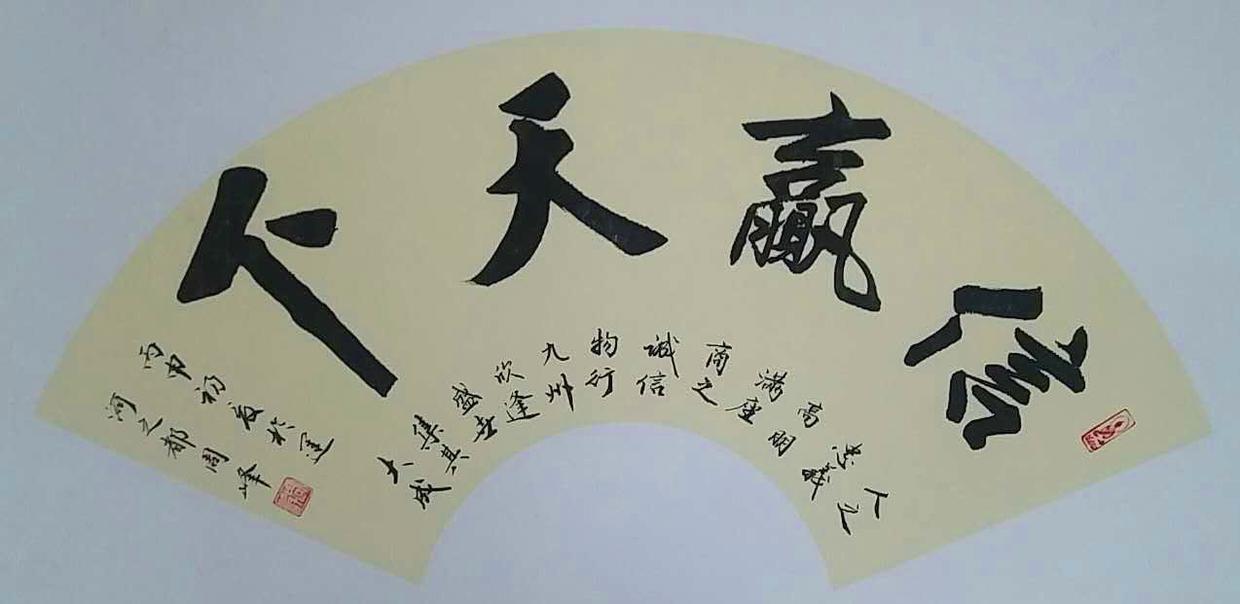 信赢天下
人之
忠義
高朋
满座
商之
诚信
物行
九州
欣逢
盛世
集其
大成
丙申初夏於運
河之都周峰